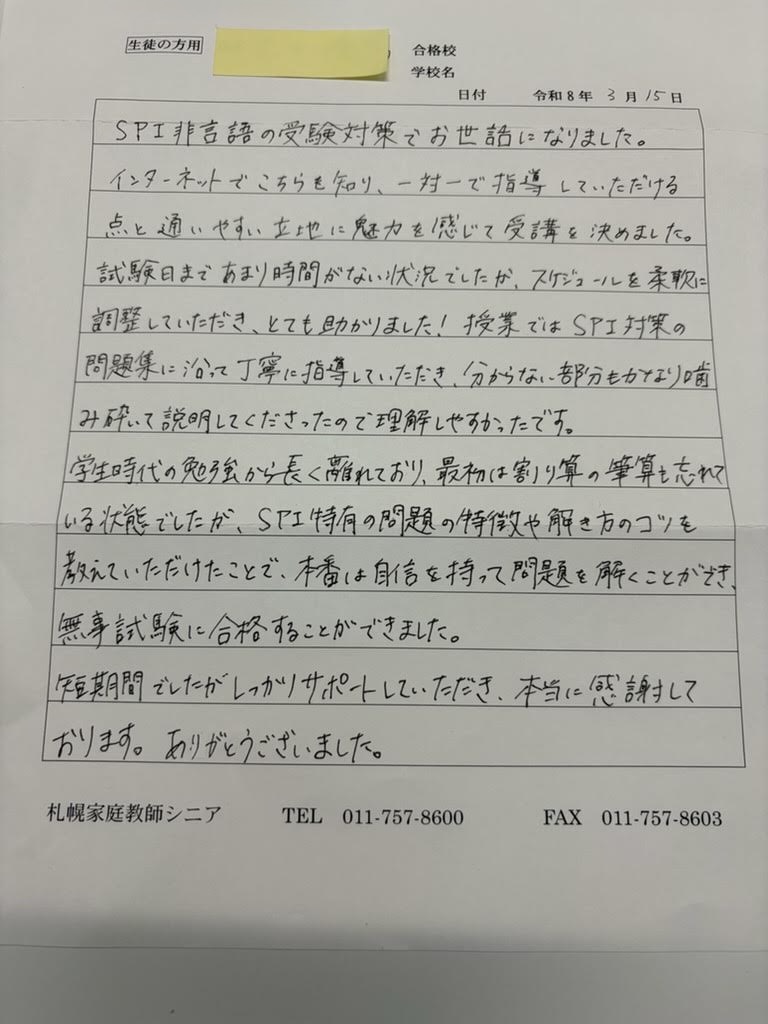 生徒の方用
合格校
学校名
日付 令和8年 3月 15日
SPI非言語の受験対策でお世話になりました。
インターネットでこちらを知り、一対一で指導していただける
点と通いやすい立地に魅力を感じて受講を決めました。
試験日まであまり時間がない状況でしたが、スケジュールを柔軟に
調整していただき、とても助かりました！授業ではSPI対策の
問題集に沿って丁寧に指導していただき、分からない部分もかなり噛
み砕いて説明してくださったので理解しやすかったです。
学生時代の勉強から長く離れており、最初は割り算の筆算も忘れて
いる状態でしたが、SPI特有の問題の特徴や解き方のコツを
教えていただけたことで、本番は自信を持って問題を解くことができ、
無事試験に合格することができました。
短期間でしたがしっかりサポートしていただき、本当に感謝して
おります。ありがとうございました。
札幌家庭教師シニア TEL 011-757-8600 FAX 011-757-8603